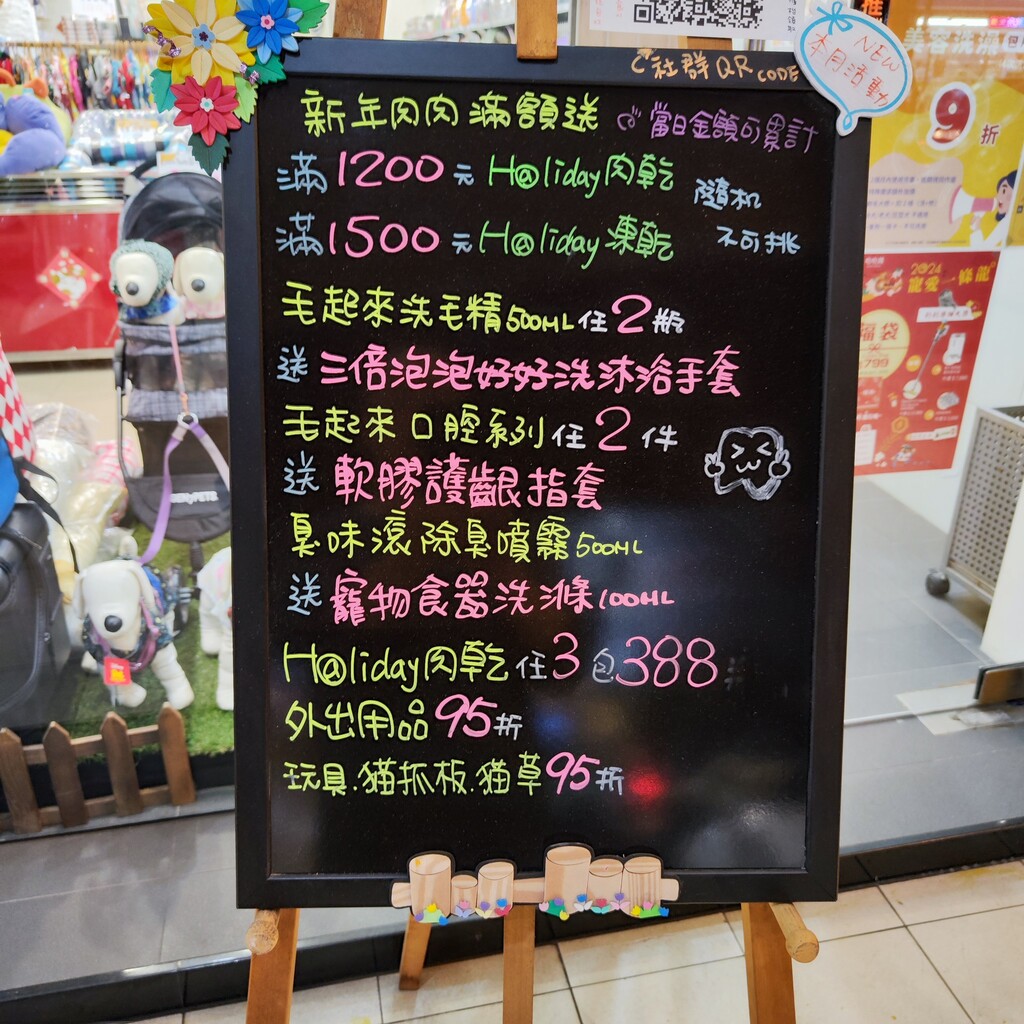 社群QR CODE
NEW
本月活動
新年肉肉滿額送 當日金額可累計
滿1200元 H@liday肉乾
滿1500元 H@liday凍乾
隨机
不可挑
毛起來洗毛精500ML任2瓶
送 三倍泡泡好好洗沐浴手套
毛起來口腔系列任2件
送 軟膠護齦指套
臭味滾除臭噴霧500ML
送 寵物食器洗滌100ML
H@liday肉乾任3包388
外出用品95折
玩具.貓抓板.貓草95折
9折
2024
寵愛一條龍
福袋